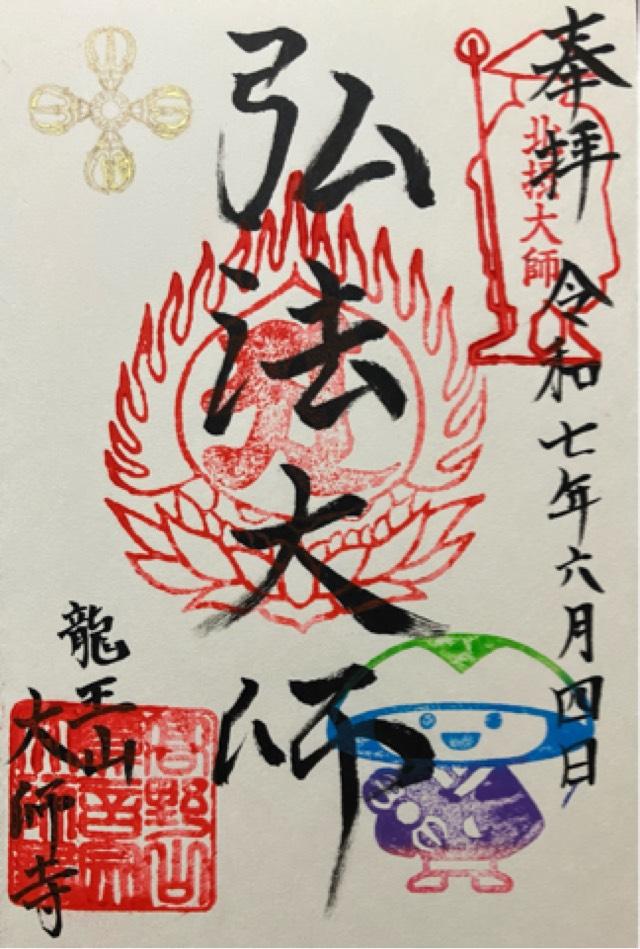 奉拝 令和七年六月四日
北摂大師
弘法大師
龍王山
大師寺